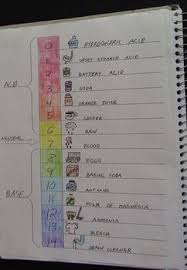 0 HYDROCHLORIC ACID
1 UPSET STOMACH ACID
2 BATTERY ACID
3 SODA
4 ORANGE JUICE
ACID
5 COFFEE
6 RAIN
NEUTRAL
7 BLOOD
8 EGGS
9 BAKING SODA
10
BASE
11 MILK OF MAGNESIA
12 AMMONIA
13 BLEACH
14 DRAIN CLEANER